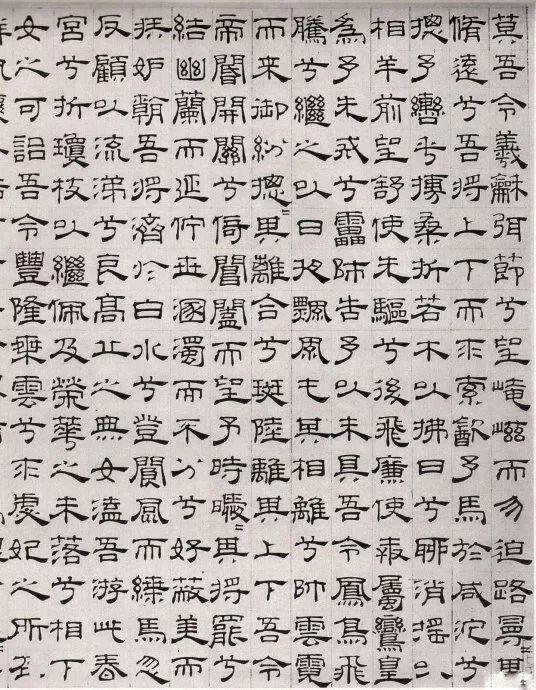 莫吾令羲龢弭節兮望崦嵫而勿迫路曼=其
脩遠兮吾將上下而求索㱃予馬於咸池兮
揔予轡乎摶桑折若木以拂日兮聊消摇以
相羊前望舒使先驅兮後飛廉使奔屬鸞皇
為予先戒兮靁師告予以未具吾令鳳鳥飛
騰兮繼之以日夜飄風屯其相離兮帥雲霓
而来御紛揔=其離合兮斑陸離其上下吾令
帝閽開關兮倚閶闔而望予時曖=其將罷兮
結幽蘭而延佇世溷濁而不分兮好蔽美而
嫉妒朝吾將濟於白水兮登閬風而緤馬忽
反顧以流涕兮哀高丘之無女溘吾游此春
宮兮折瓊枝以繼佩及榮華之未落兮相下
女之可詒吾令豐隆乘雲兮求虙妃之所在